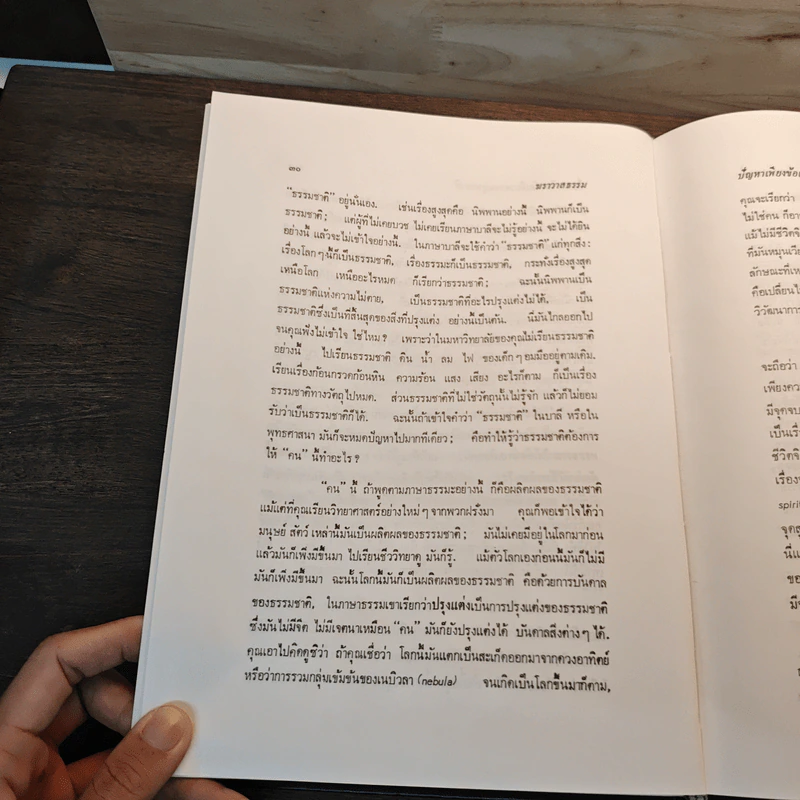 ๓๐
ฆราวาสธรรม
"ธรรมชาติ" อยู่นั่นเอง. เช่นเรื่องสูงสุดคือ นิพพานอย่างนี้ นิพพานก็เป็น
ธรรมชาติ; แต่ผู้ที่ไม่เคยบวช ไม่เคยเรียนภาษาบาลีจะไม่รู้อย่างนี้ จะไม่ได้ยิน
อย่างนี้ แล้วจะไม่เข้าใจอย่างนี้. ในภาษาบาลีจะใช้คำว่า "ธรรมชาติ" แก่ทุกสิ่ง:
เรื่องโลก ๆ นี้ก็เป็นธรรมชาติ, เรื่องธรรมะก็เป็นธรรมชาติ, กระทั่งเรื่องสูงสุด
เหนือโลก เหนืออะไรหมด ก็เรียกว่าธรรมชาติ; ฉะนั้นนิพพานเป็น
ธรรมชาติแห่งความไม่ตาย, เป็นธรรมชาติที่อะไรปรุงแต่งไม่ได้, เป็น
ธรรมชาติซึ่งเป็นที่สิ้นสุดของสิ่งที่ปรุงแต่ง อย่างนี้เป็นต้น. นี่มันไกลออกไป
จนคุณฟังไม่เข้าใจ ใช่ไหม? เพราะว่าในมหาวิทยาลัยของคุณไม่เรียนธรรมชาติ
อย่างนี้ ไปเรียนธรรมชาติ ดิน น้ำ ลม ไฟ ของเด็ก ๆ อมมืออยู่ตามเดิม.
เรียนเรื่องก้อนกรวดก้อนหิน ความร้อน แสง เสียง อะไรก็ตาม ก็เป็นเรื่อง
ธรรมชาติทางวัตถุไปหมด. ส่วนธรรมชาติที่ไม่ใช่วัตถุนั้นไม่รู้จัก แล้วก็ไม่ยอม
รับว่าเป็นธรรมชาติก็ได้. ฉะนั้นถ้าเข้าใจคำว่า "ธรรมชาติ" ในบาลี หรือใน
พุทธศาสนา มันก็จะหมดปัญหาไปมากทีเดียว; คือทำให้รู้ว่าธรรมชาติต้องการ
ให้ "คน" นี้ทำอะไร?
"คน" นี้ ถ้าพูดตามภาษาธรรมะอย่างนี้ ก็คือผลิตผลของธรรมชาติ
แม้แต่ที่คุณเรียนวิทยาศาสตร์อย่างใหม่ ๆ จากพวกฝรั่งมา คุณก็พอเข้าใจได้ว่า
มนุษย์ สัตว์ เหล่านี้มันเป็นผลิตผลของธรรมชาติ; มันไม่เคยมีอยู่ในโลกมาก่อน
แล้วมันก็เพิ่งมีขึ้นมา ไปเรียนชีววิทยาดู มันก็รู้. แม้ตัวโลกเองก่อนนี้มันก็ไม่มี
มันก็เพิ่งมีขึ้นมา ฉะนั้นโลกนี้มันก็เป็นผลิตผลของธรรมชาติ คือด้วยการบันดาล
ของธรรมชาติ, ในภาษาธรรมเขาเรียกว่าปรุงแต่งเป็นการปรุงแต่งของธรรมชาติ
ซึ่งมันไม่มีจิต ไม่มีเจตนาเหมือน "คน" มันก็ยังปรุงแต่งได้ บันดาลสิ่งต่าง ๆ ได้.
คุณเอาไปคิดดูซิว่า ถ้าคุณเชื่อว่า โลกนี้มันแตกเป็นสะเก็ดออกมาจากดวงอาทิตย์
หรือว่าการรวมกลุ่มเข้มข้นของเนบิวลา (nebula) จนเกิดเป็นโลกขึ้นมาก็ตาม,
ปัญหาเพียงข้อ
คุณจะเรียกว่า
ไม่ใช่คน ก็อา
แม้ไม่มีชีวิตจิ
ที่มันหมุนเวีย
ลักษณะที่เห
คือเปลี่ยนไ
วิวัฒนาการ
จะถือว่า
เพียงคว
มีจุดจบ
เป็นเรื่
ชีวิตจิ
เรื่อง
spiri
จุดสู
นี่แ
ของ
มีจ